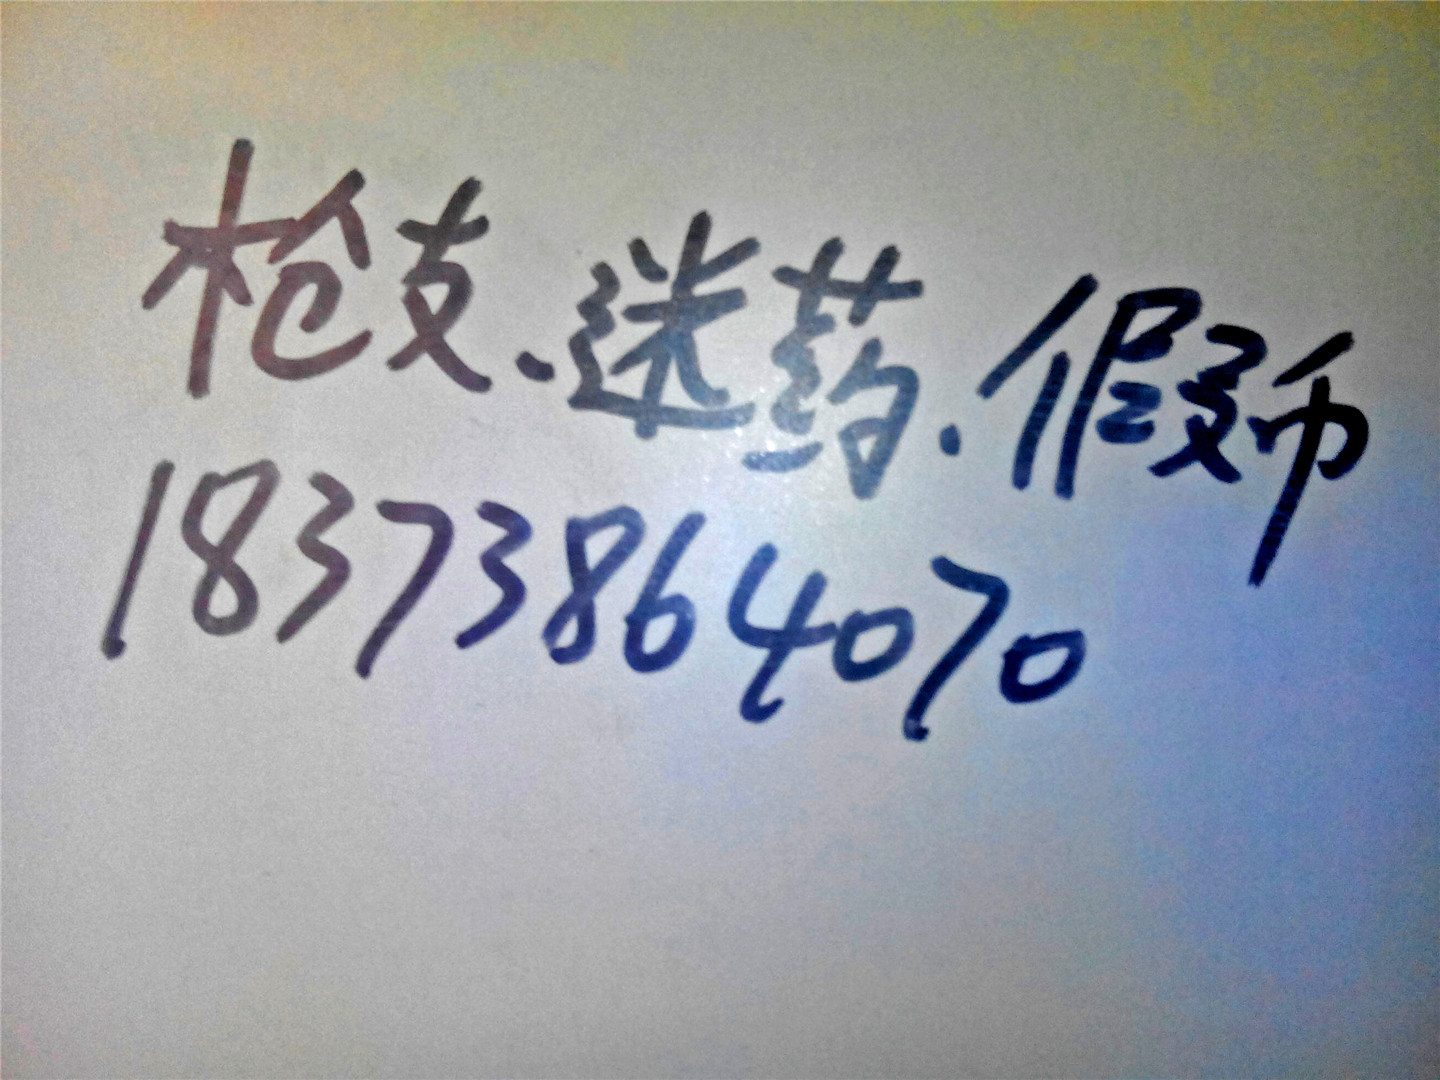 枪支.迷药.假币
18373864070